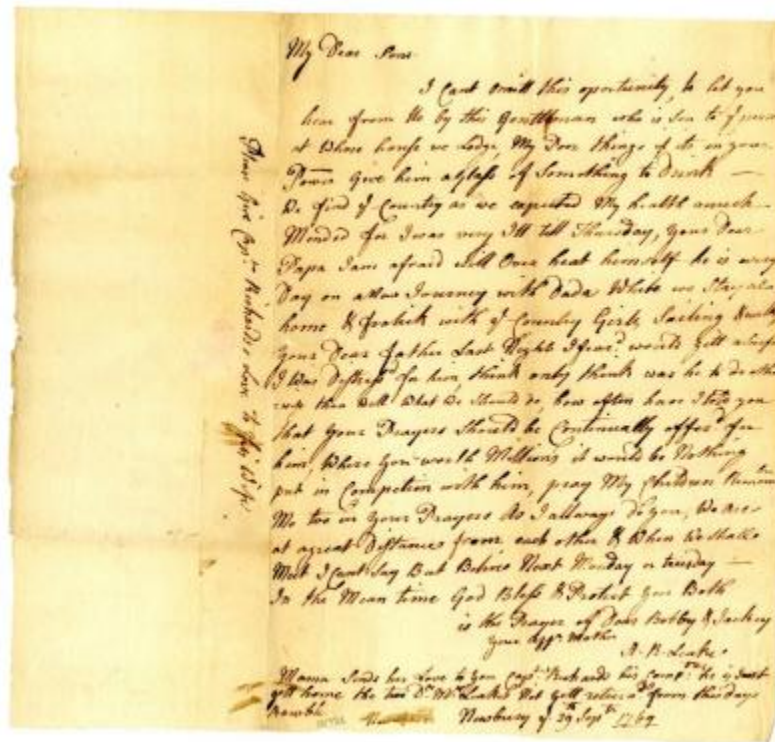 My Dear Sons
I Cant omitt this oportunity, to let you
hear from Us by this Gentleman who is Son to
at Whose house we Lodge, My Dear things if its in your
Power Give him a Glass of Something to Drink —
We find y Country as we expected My health much
Mended for I was very Ill till Thursday, Your Dear
Papa I am afraid will Over heat himself he is every
Day on a Journey with Dada White we Stay at
home & frolick with y Country Girls,
Your Dear father Last Night I would
I Was Distress'd for him, think only think was he to do
than well What We Should do, how often have I told you
that Your Prayers Should be Continually offer'd for
him, Where You worth Millions it would be Nothing
put in Competion with him, pray My Children
Me too in Your Prayers As I allways do you, We are
at a great Distance from each other & When We Shall
Meet I Cant Say But Believe Next Monday or tuesday —
In the Mean time God Bless & Protect You Both
is the Prayer of Dear Bobby & Jackey
Your Mother
Leake
Mama Sends her Love to You Capt Richards his he is Just
gott home the two Leakes Not from this days
Ramble
Newbury y 29 Sept 1769
Please Give Capt Richards Love to his Wife